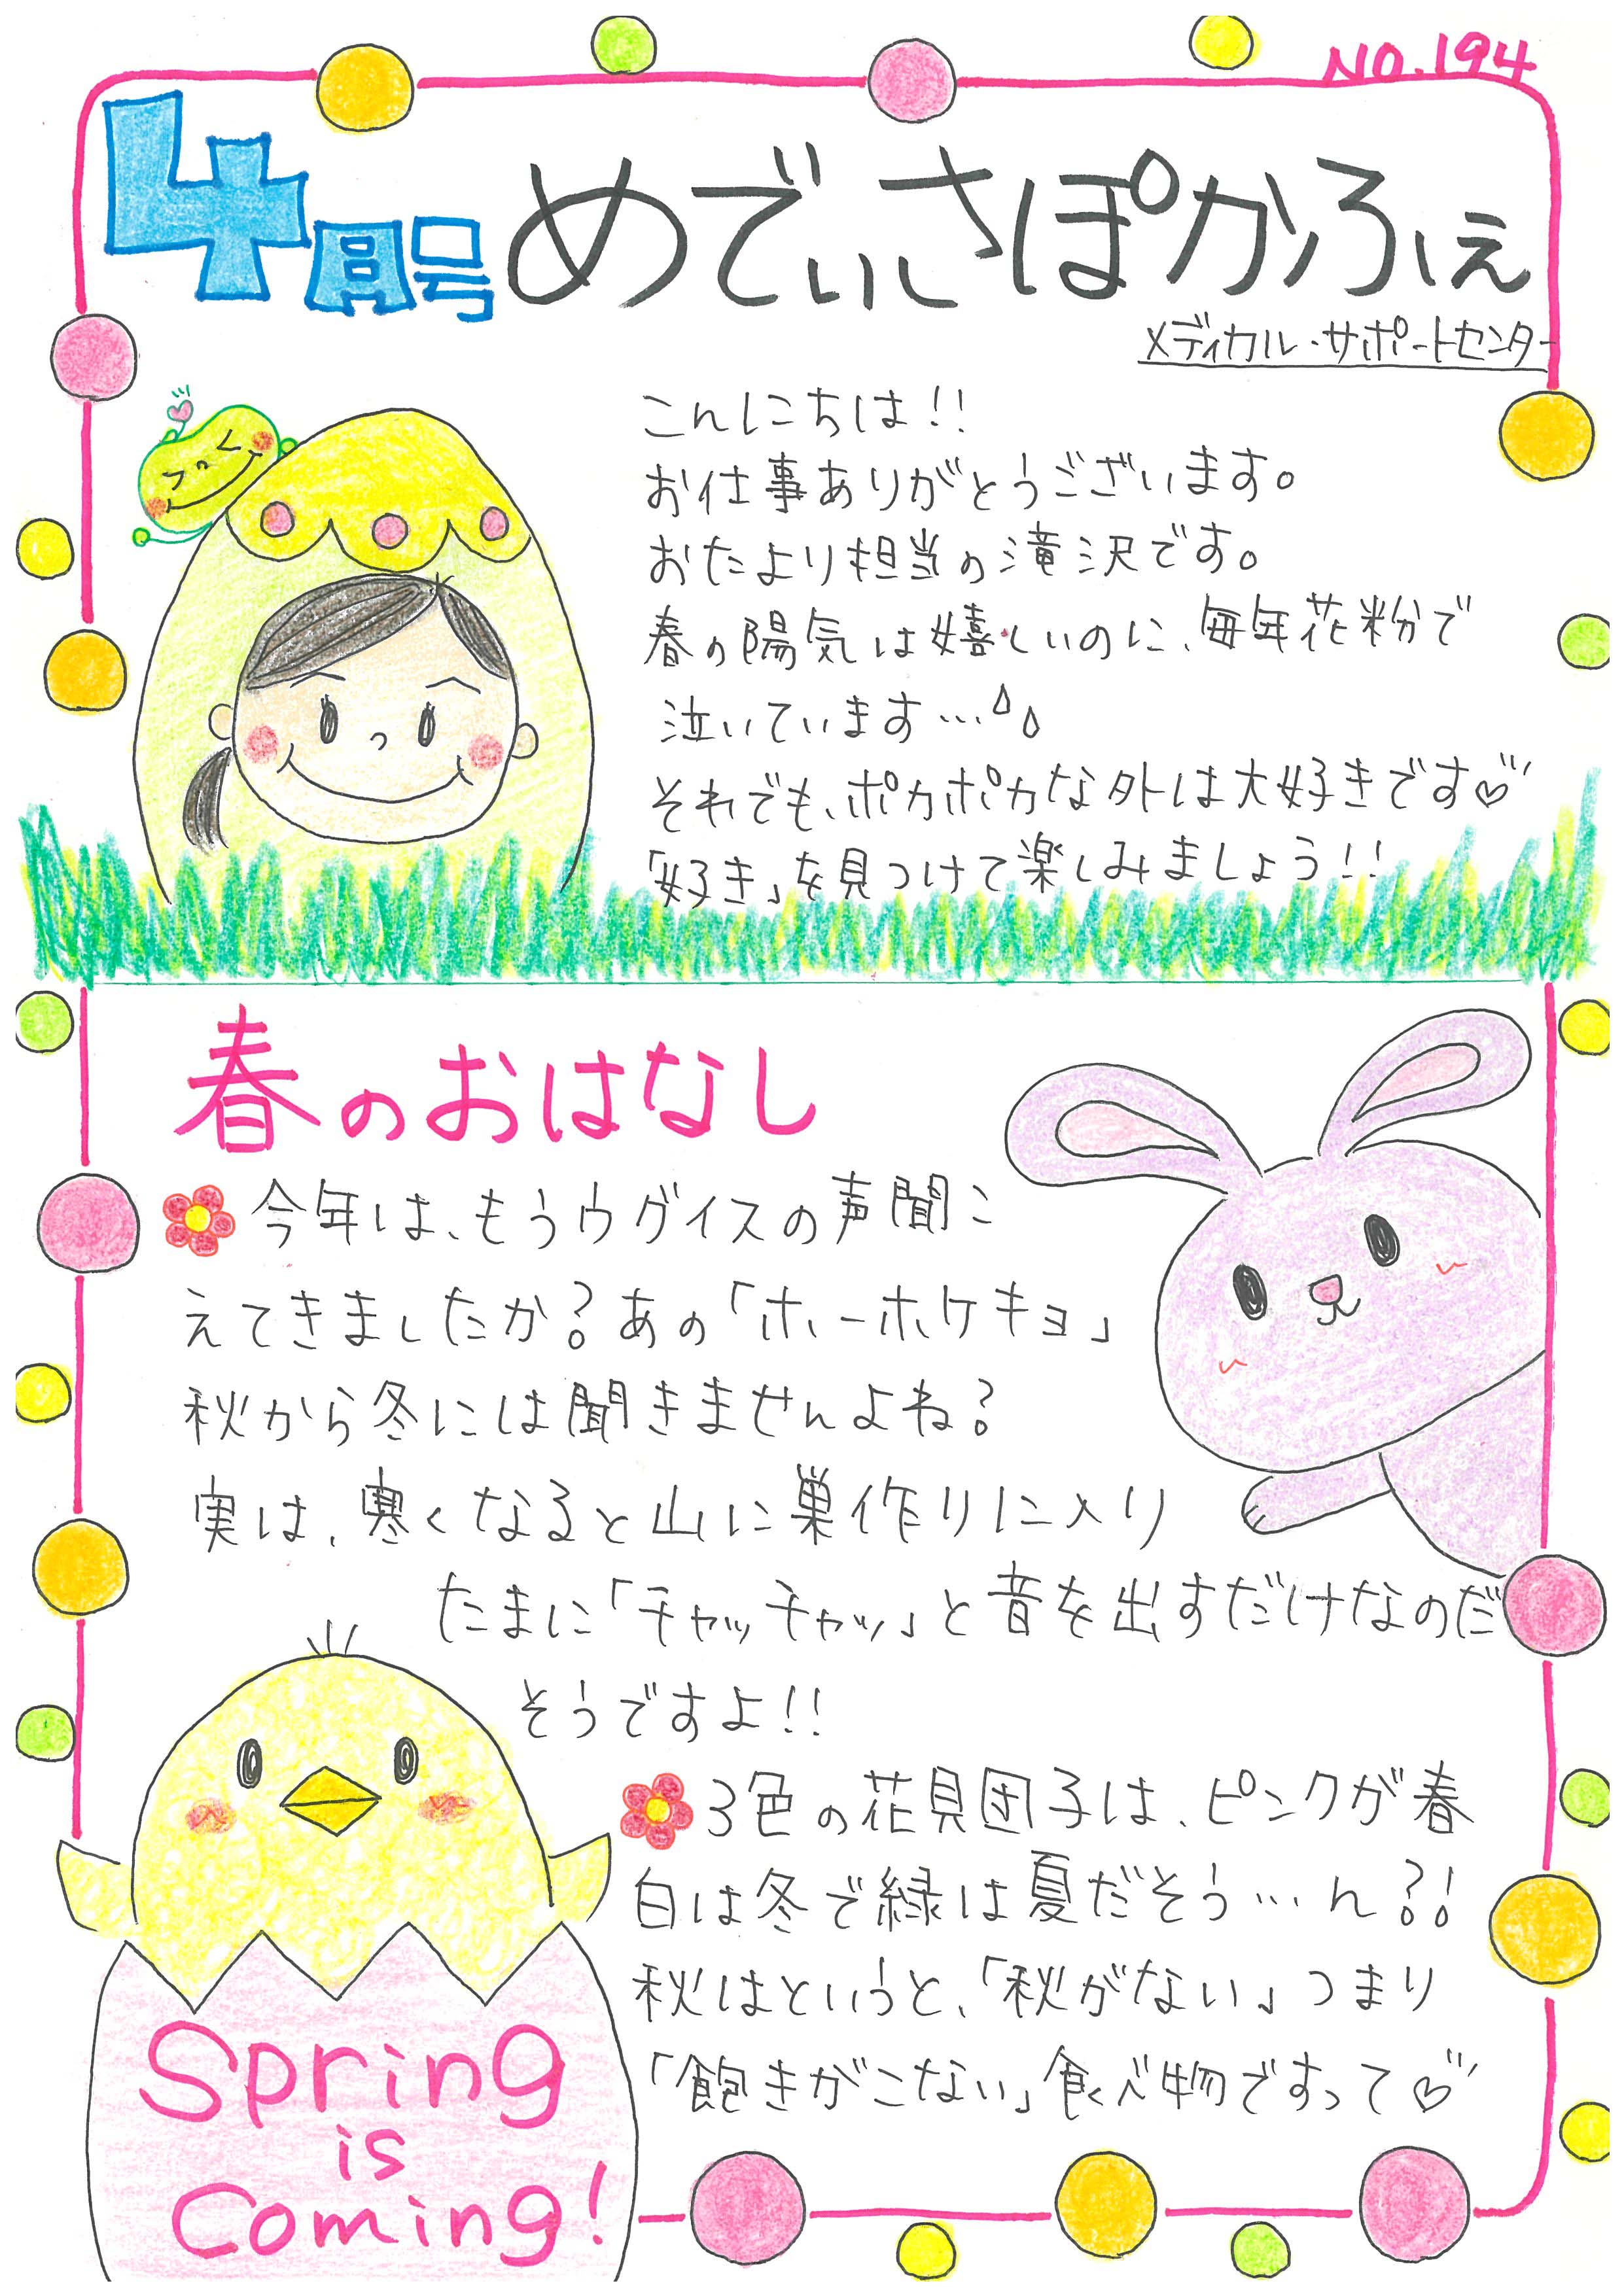 NO.194
4月号 めでぃさぽかふぇ
メディカル・サポートセンター
こんにちは!!
お仕事ありがとうございます。
おたより担当の滝沢です。
春の陽気は嬉しいのに、毎年花粉で
泣いています…
それでも、ポカポカな外は大好きです♡
「好き」を見つけて楽しみましょう!!
春のおはなし
今年は、もうウグイスの声聞こ
えてきましたか?あの「ホーホケキョ」
秋から冬には聞きませんよね?
実は、寒くなると山に巣作りに入り
たまに「チャッチャッ」と音を出すだけなのだ
そうですよ!!
3色の花見団子は、ピンクが春
白は冬で緑は夏だそう…ん?!
秋はというと、「秋がない」つまり
「飽きがこない」食べ物ですって♡
Spring
is
Coming!